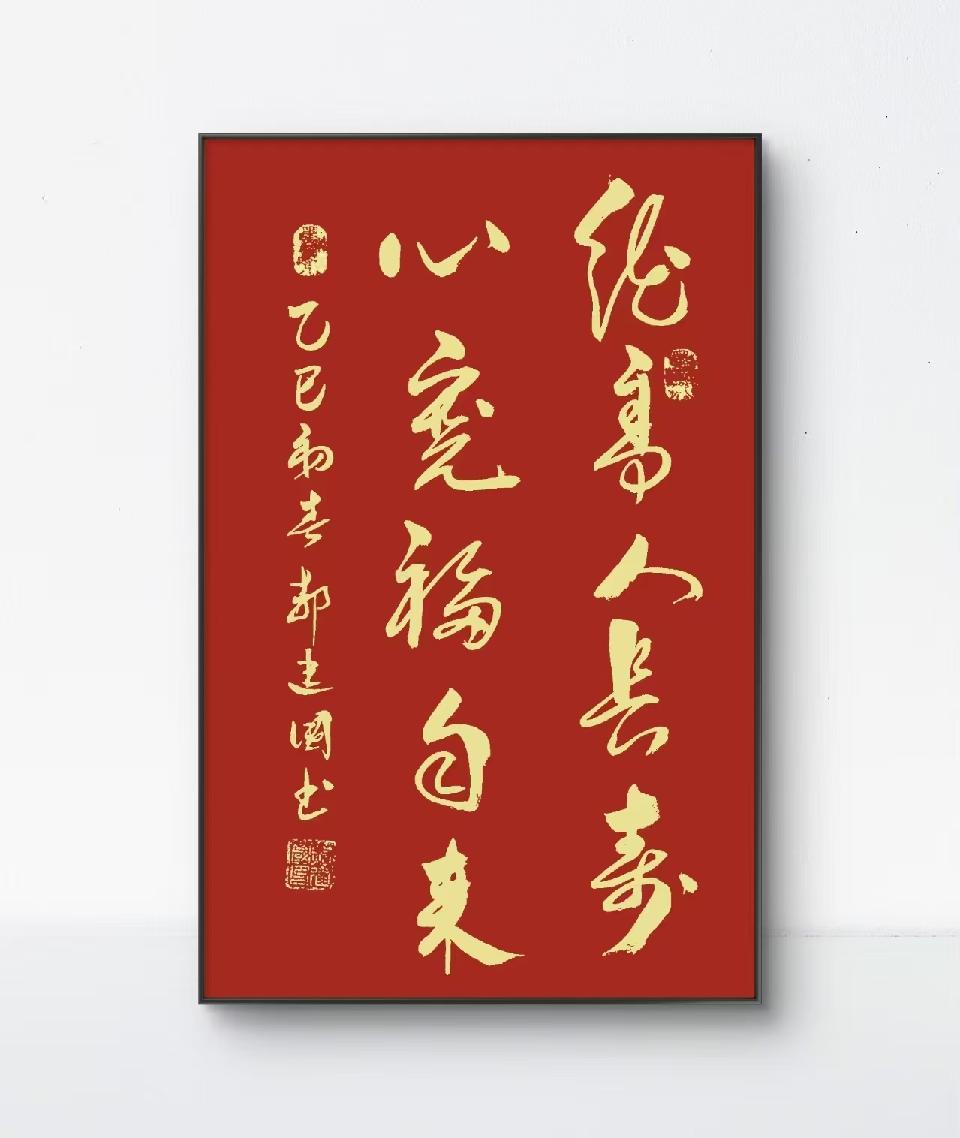 德高人长寿
心宽福自来
乙巳初春郝建國书